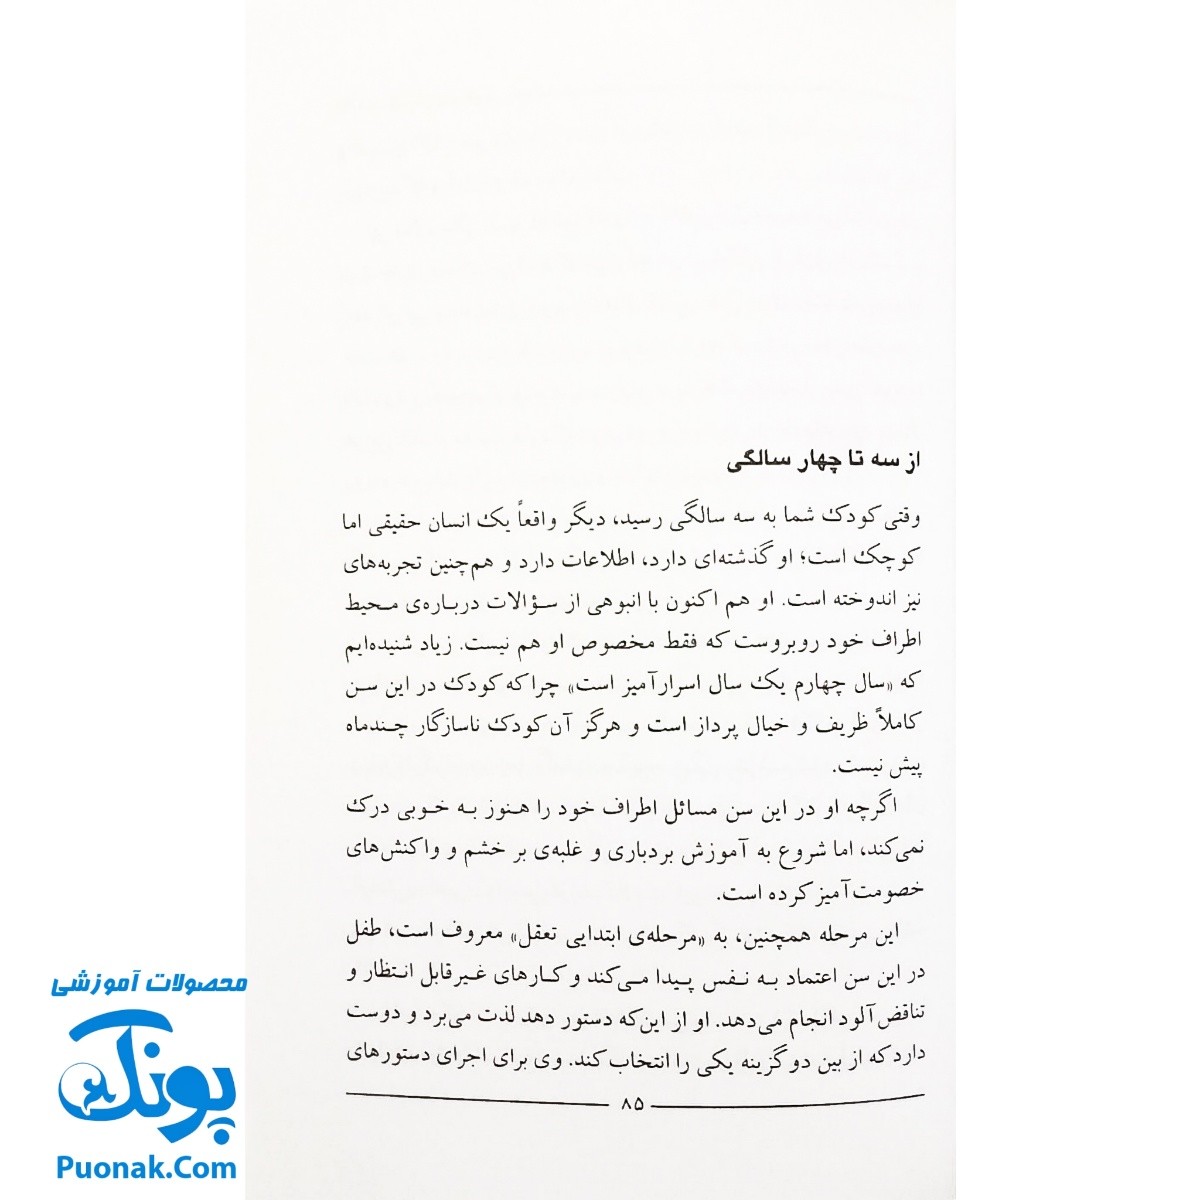 از سه تا چهار سالگی
وقتی کودک شما به سه سالگی رسید، دیگر واقعاً یک انسان حقیقی اما
کوچک است؛ او گذشته‌ای دارد، اطلاعات دارد و هم‌چنین تجربه‌های
نیز اندوخته است. او هم اکنون با انبوهی از سؤالات درباره‌ی محیط
اطراف خود روبروست که فقط مخصوص او هم نیست. زیاد شنیده‌ایم
که «سال چهارم یک سال اسرارآمیز است» چرا که کودک در این سن
کاملاً ظریف و خیال پرداز است و هرگز آن کودک ناسازگار چندماه
پیش نیست.
اگرچه او در این سن مسائل اطراف خود را هنوز به خوبی درک
نمی‌کند، اما شروع به آموزش بردباری و غلبه‌ی بر خشم و واکنش‌های
خصومت‌آمیز کرده است.
این مرحله همچنین، به «مرحله‌ی ابتدایی تعقل» معروف است، طفل
در این سن اعتماد به نفس پیدا می‌کند و کارهای غیرقابل انتظار و
تناقض‌آلود انجام می‌دهد. او از این‌که دستور دهد لذت می‌برد و دوست
دارد که از بین دو گزینه یکی را انتخاب کند. وی برای اجرای دستورهای
۸۵
محصولات آموزشی
پونک
Puonak.Com